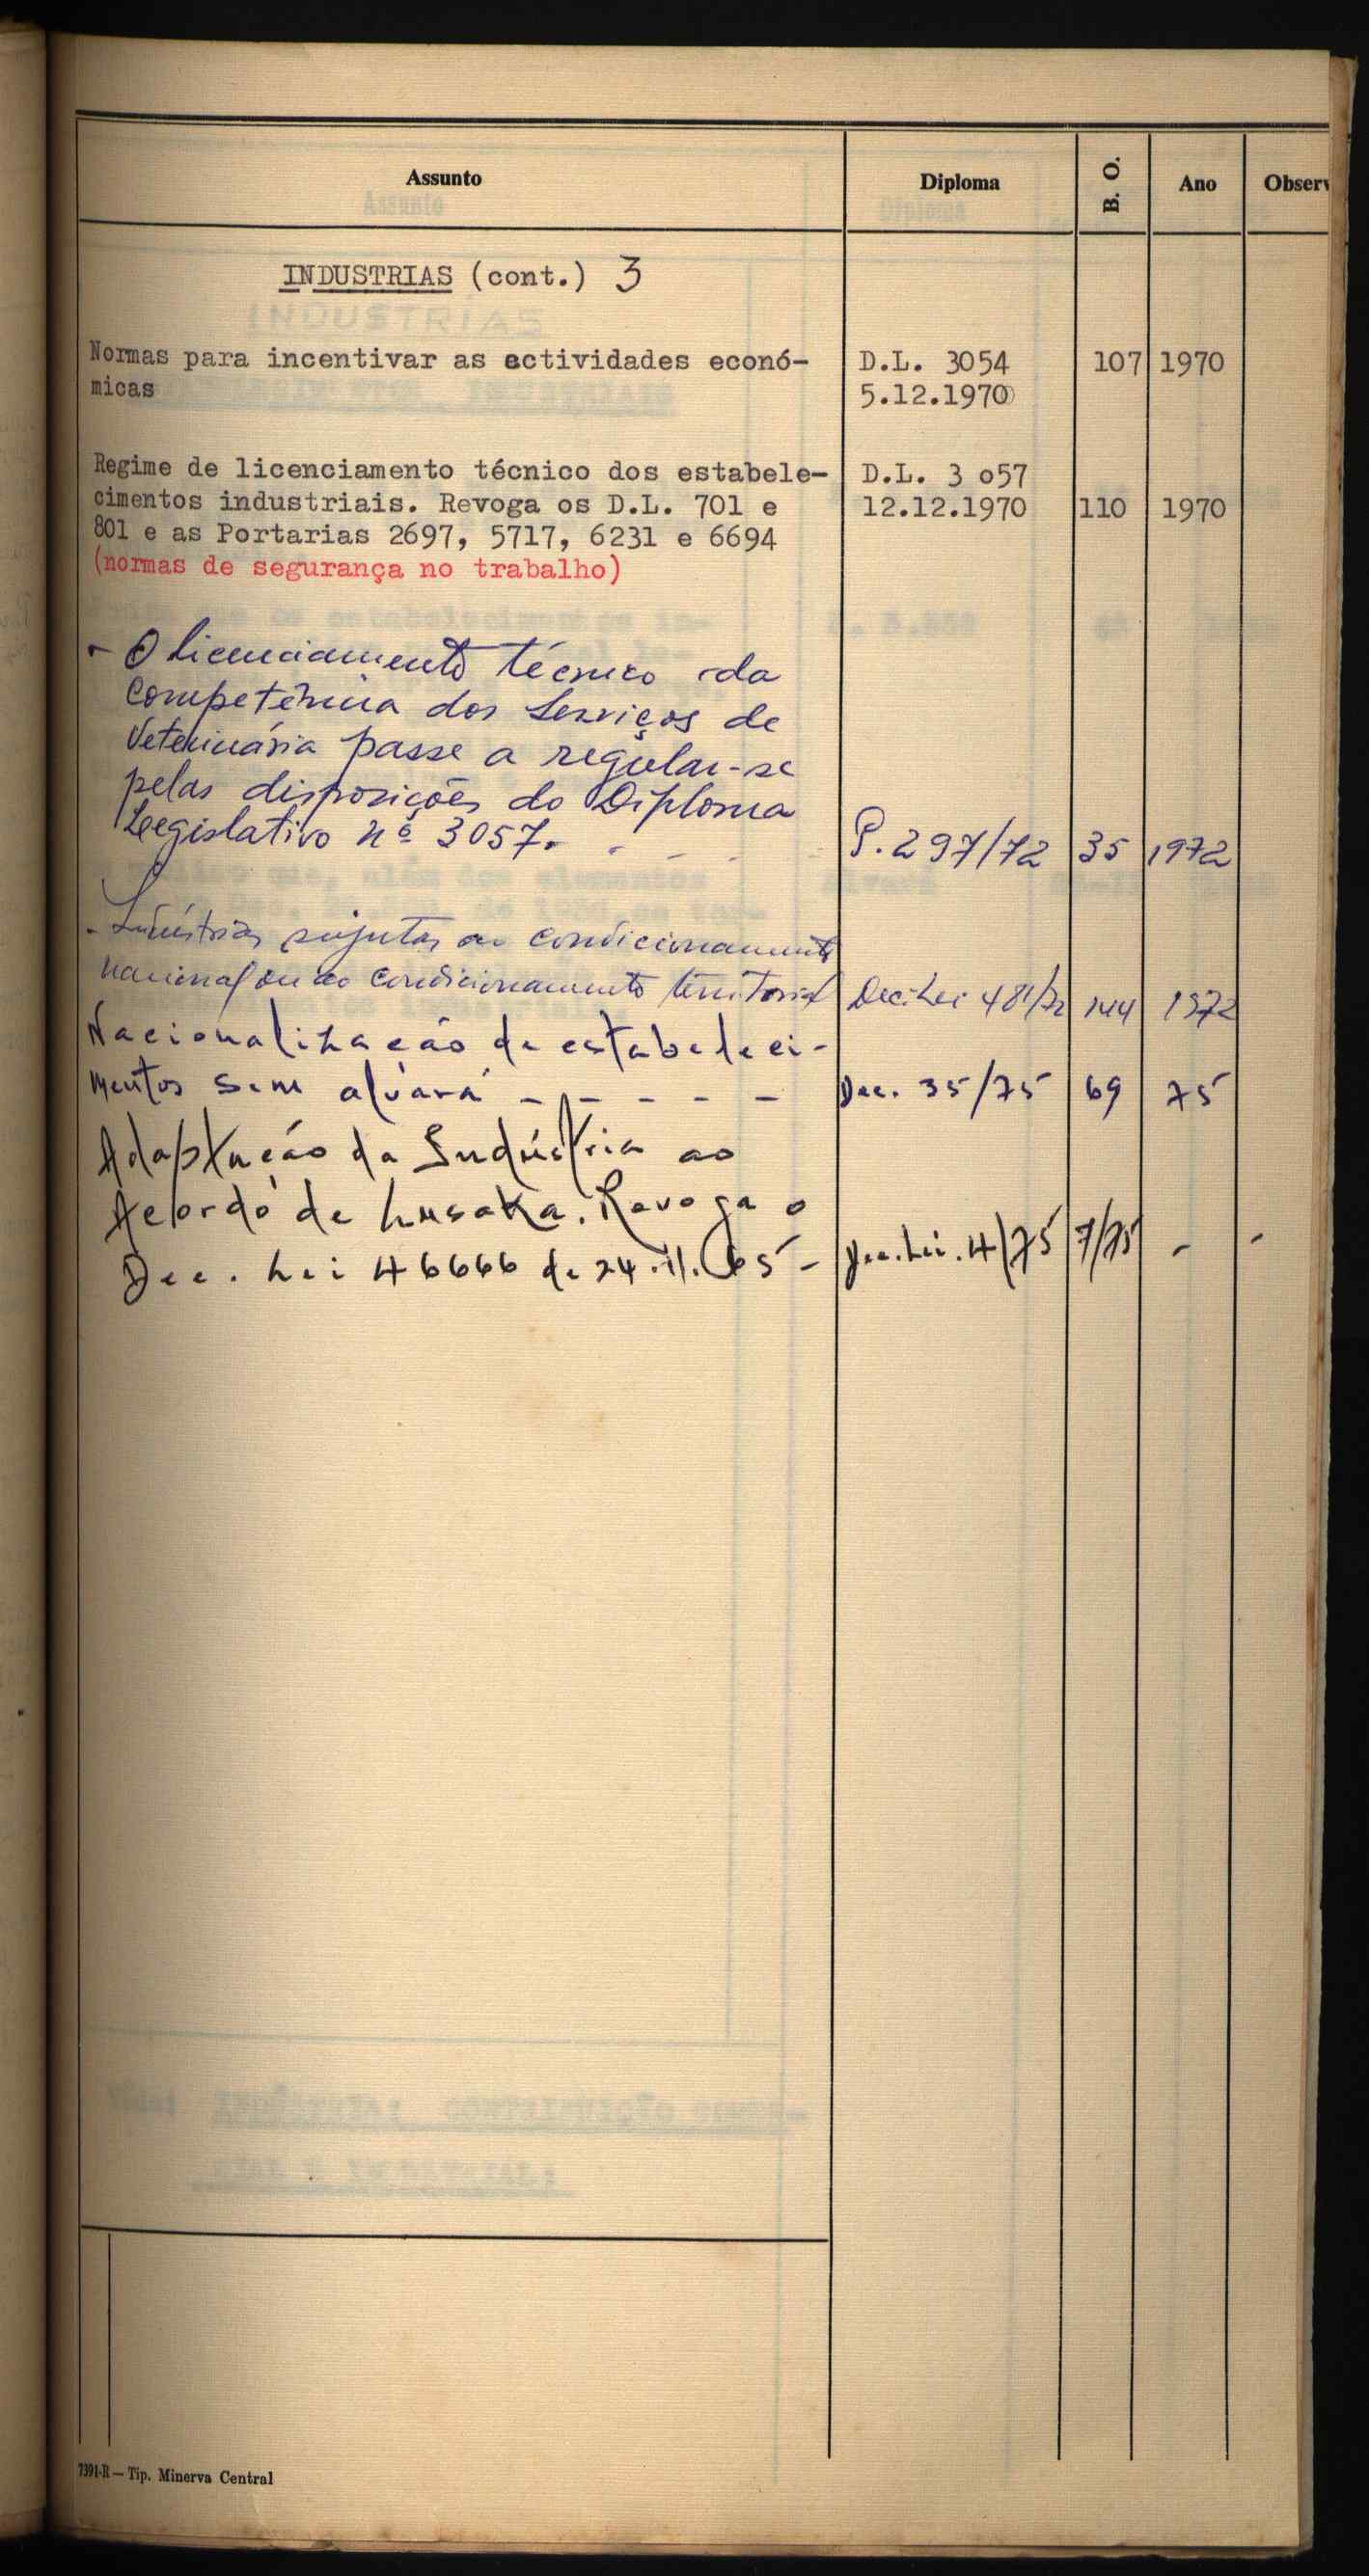 Assunto Diploma B. O. Ano Observ
INDUSTRIAS (cont.) 3
Normas para incentivar as actividades econó- D.L. 3054 107 1970
micas 5.12.1970
Regime de licenciamento técnico dos estabele- D.L. 3 o57
cimentos industriais. Revoga os D.L. 701 e 12.12.1970 110 1970
801 e as Portarias 2697, 5717, 6231 e 6694
(normas de segurança no trabalho)
- O licenciamento técnico da
competência dos Serviços de
Veterinária passe a regular-se
pelas disposições do Diploma
Legislativo nº 3057. P. 297/72 35 1972
- Indústrias sujeitas ao condicionamento
nacional ou ao condicionamento territorial Dec. Lei 481/72 144 1972
Nacionalização de estabeleci-
mentos sem alvará - - - - - Dec. 35/75 69 75
Adaptação da Indústria ao
Acordo de Lusaka. Revoga o
Dec. Lei 46666 de 24.11.65 - Dec. Lei. 4/75 7/75 - -
7391-R — Tip. Minerva Central